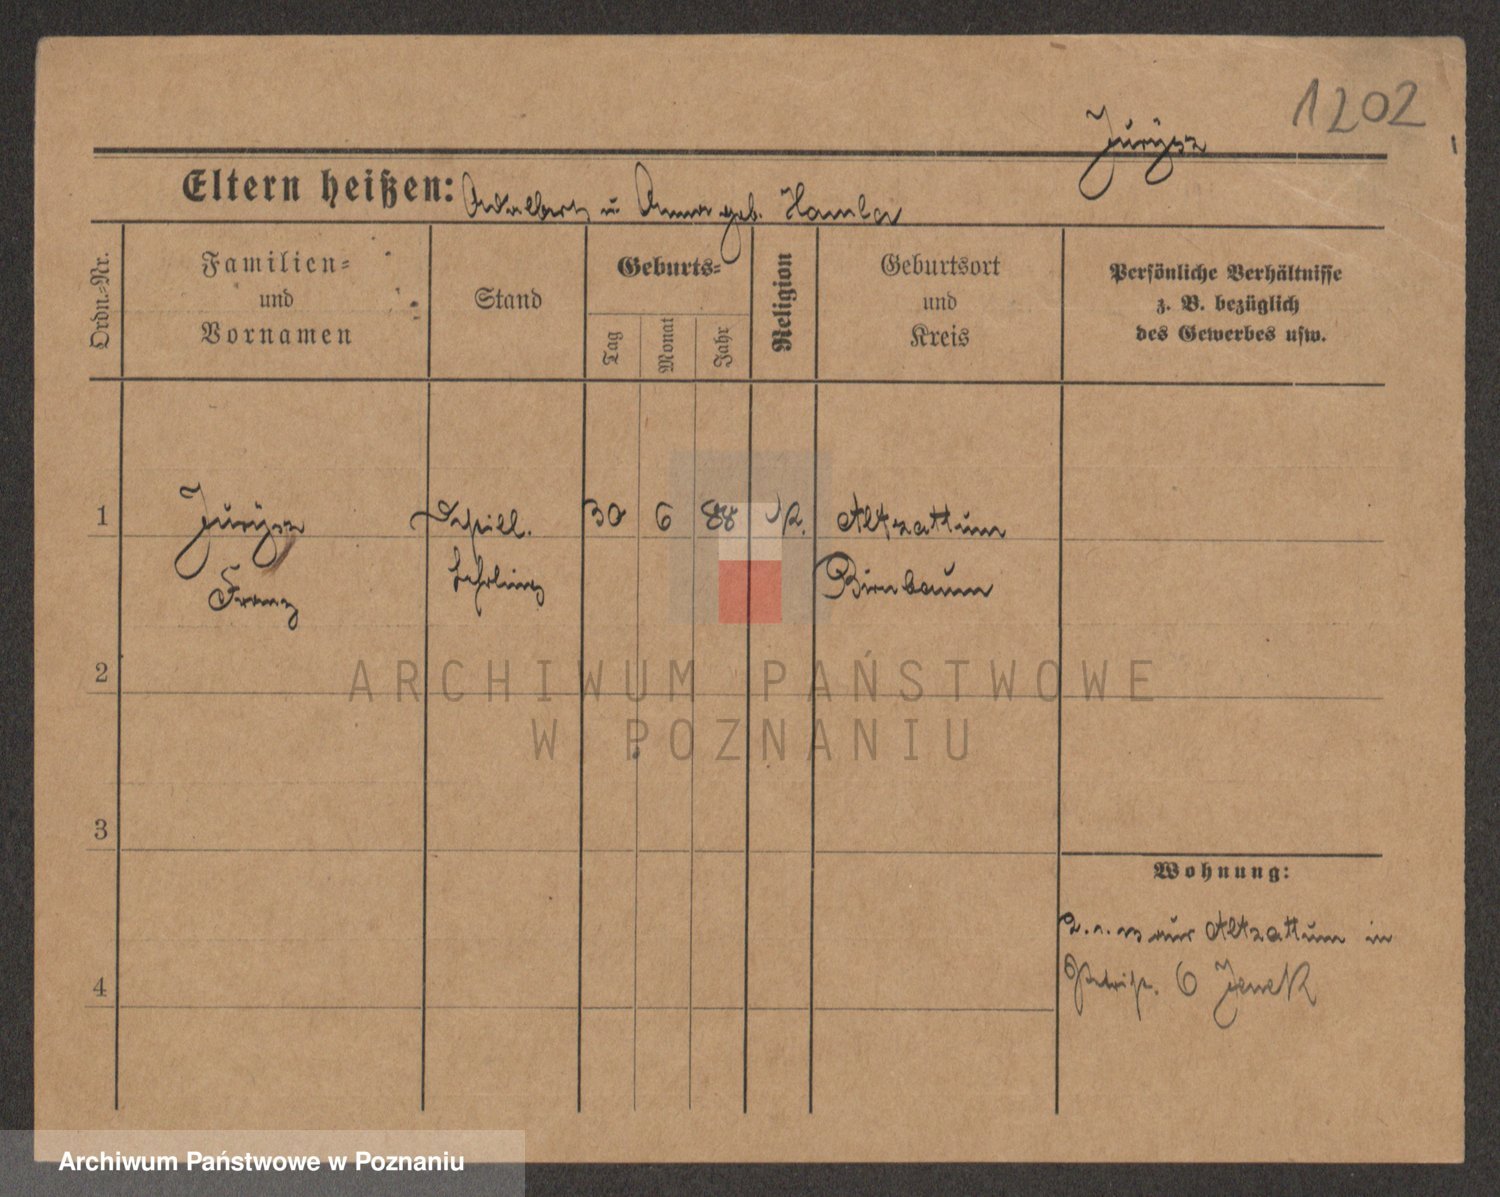 1202
Jurÿsz
Eltern heißen: Adalbert u Anna geb. Hamla
Ordn.=Nr.
Familien=
und
Vornamen
Stand
Geburts=
Tag
Monat
Jahr
Religion
Geburtsort
und
Kreis
Persönliche Verhältnisse
z. B. bezüglich
des Gewerbes usw.
1 Jurÿsz 30 6 88 K. Altzattum
Franz Lehrling Birnbaum
2
3
4
Wohnung:
aus Altzattum in
6 Jenek
ARCHIWUM PAŃSTWOWE
W POZNANIU
Archiwum Państwowe w Poznaniu